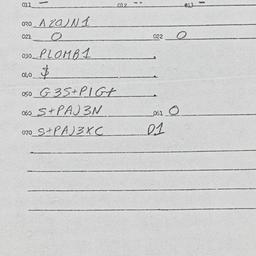 011 — 012 -- 013 —
020 AZOJN1
021 O 022 O
030 PLOMB1
040 $
050 G3S+PIG+
060 S+PAJ3N 061 O
070 S+PAJ3XC 01